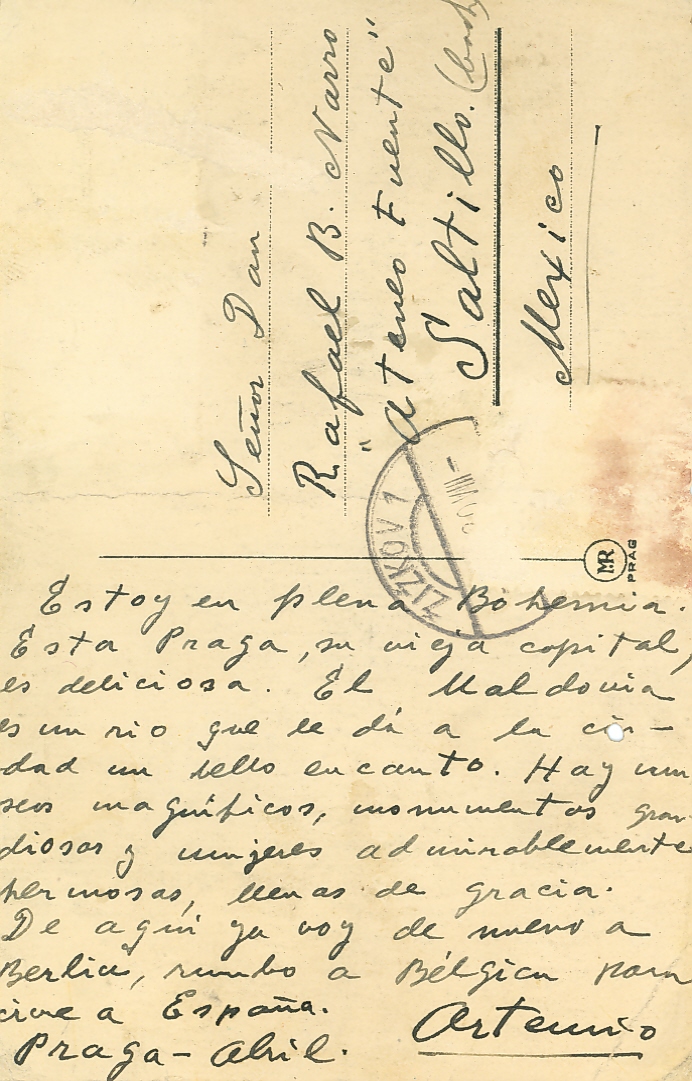 Señor Don
Rafael B. Narro
"Ateneo Fuente"
Saltillo.
Mexico
ZIZKOV 1
MR
PRAG
Estoy en plena Bohemia.
Esta Praga, su vieja capital,
es deliciosa. El Maldovia
es un rio que le dá a la ciu-
dad un bello encanto. Hay mu
seos magníficos, monumentos gran
diosos y mujeres admirablemente
hermosas, llenas de gracia.
De aquí ya voy de nuevo a
Berlin, rumbo a Bélgica para
irme a España.
Artemio
Praga - Abril.